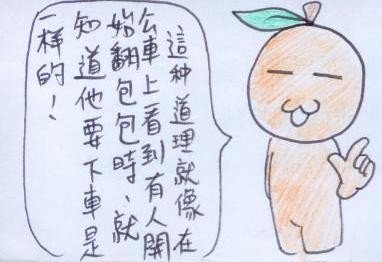 這种道理就像在
公車上看到有人開
始翻包包時、就
知道他要下車是
一樣的！